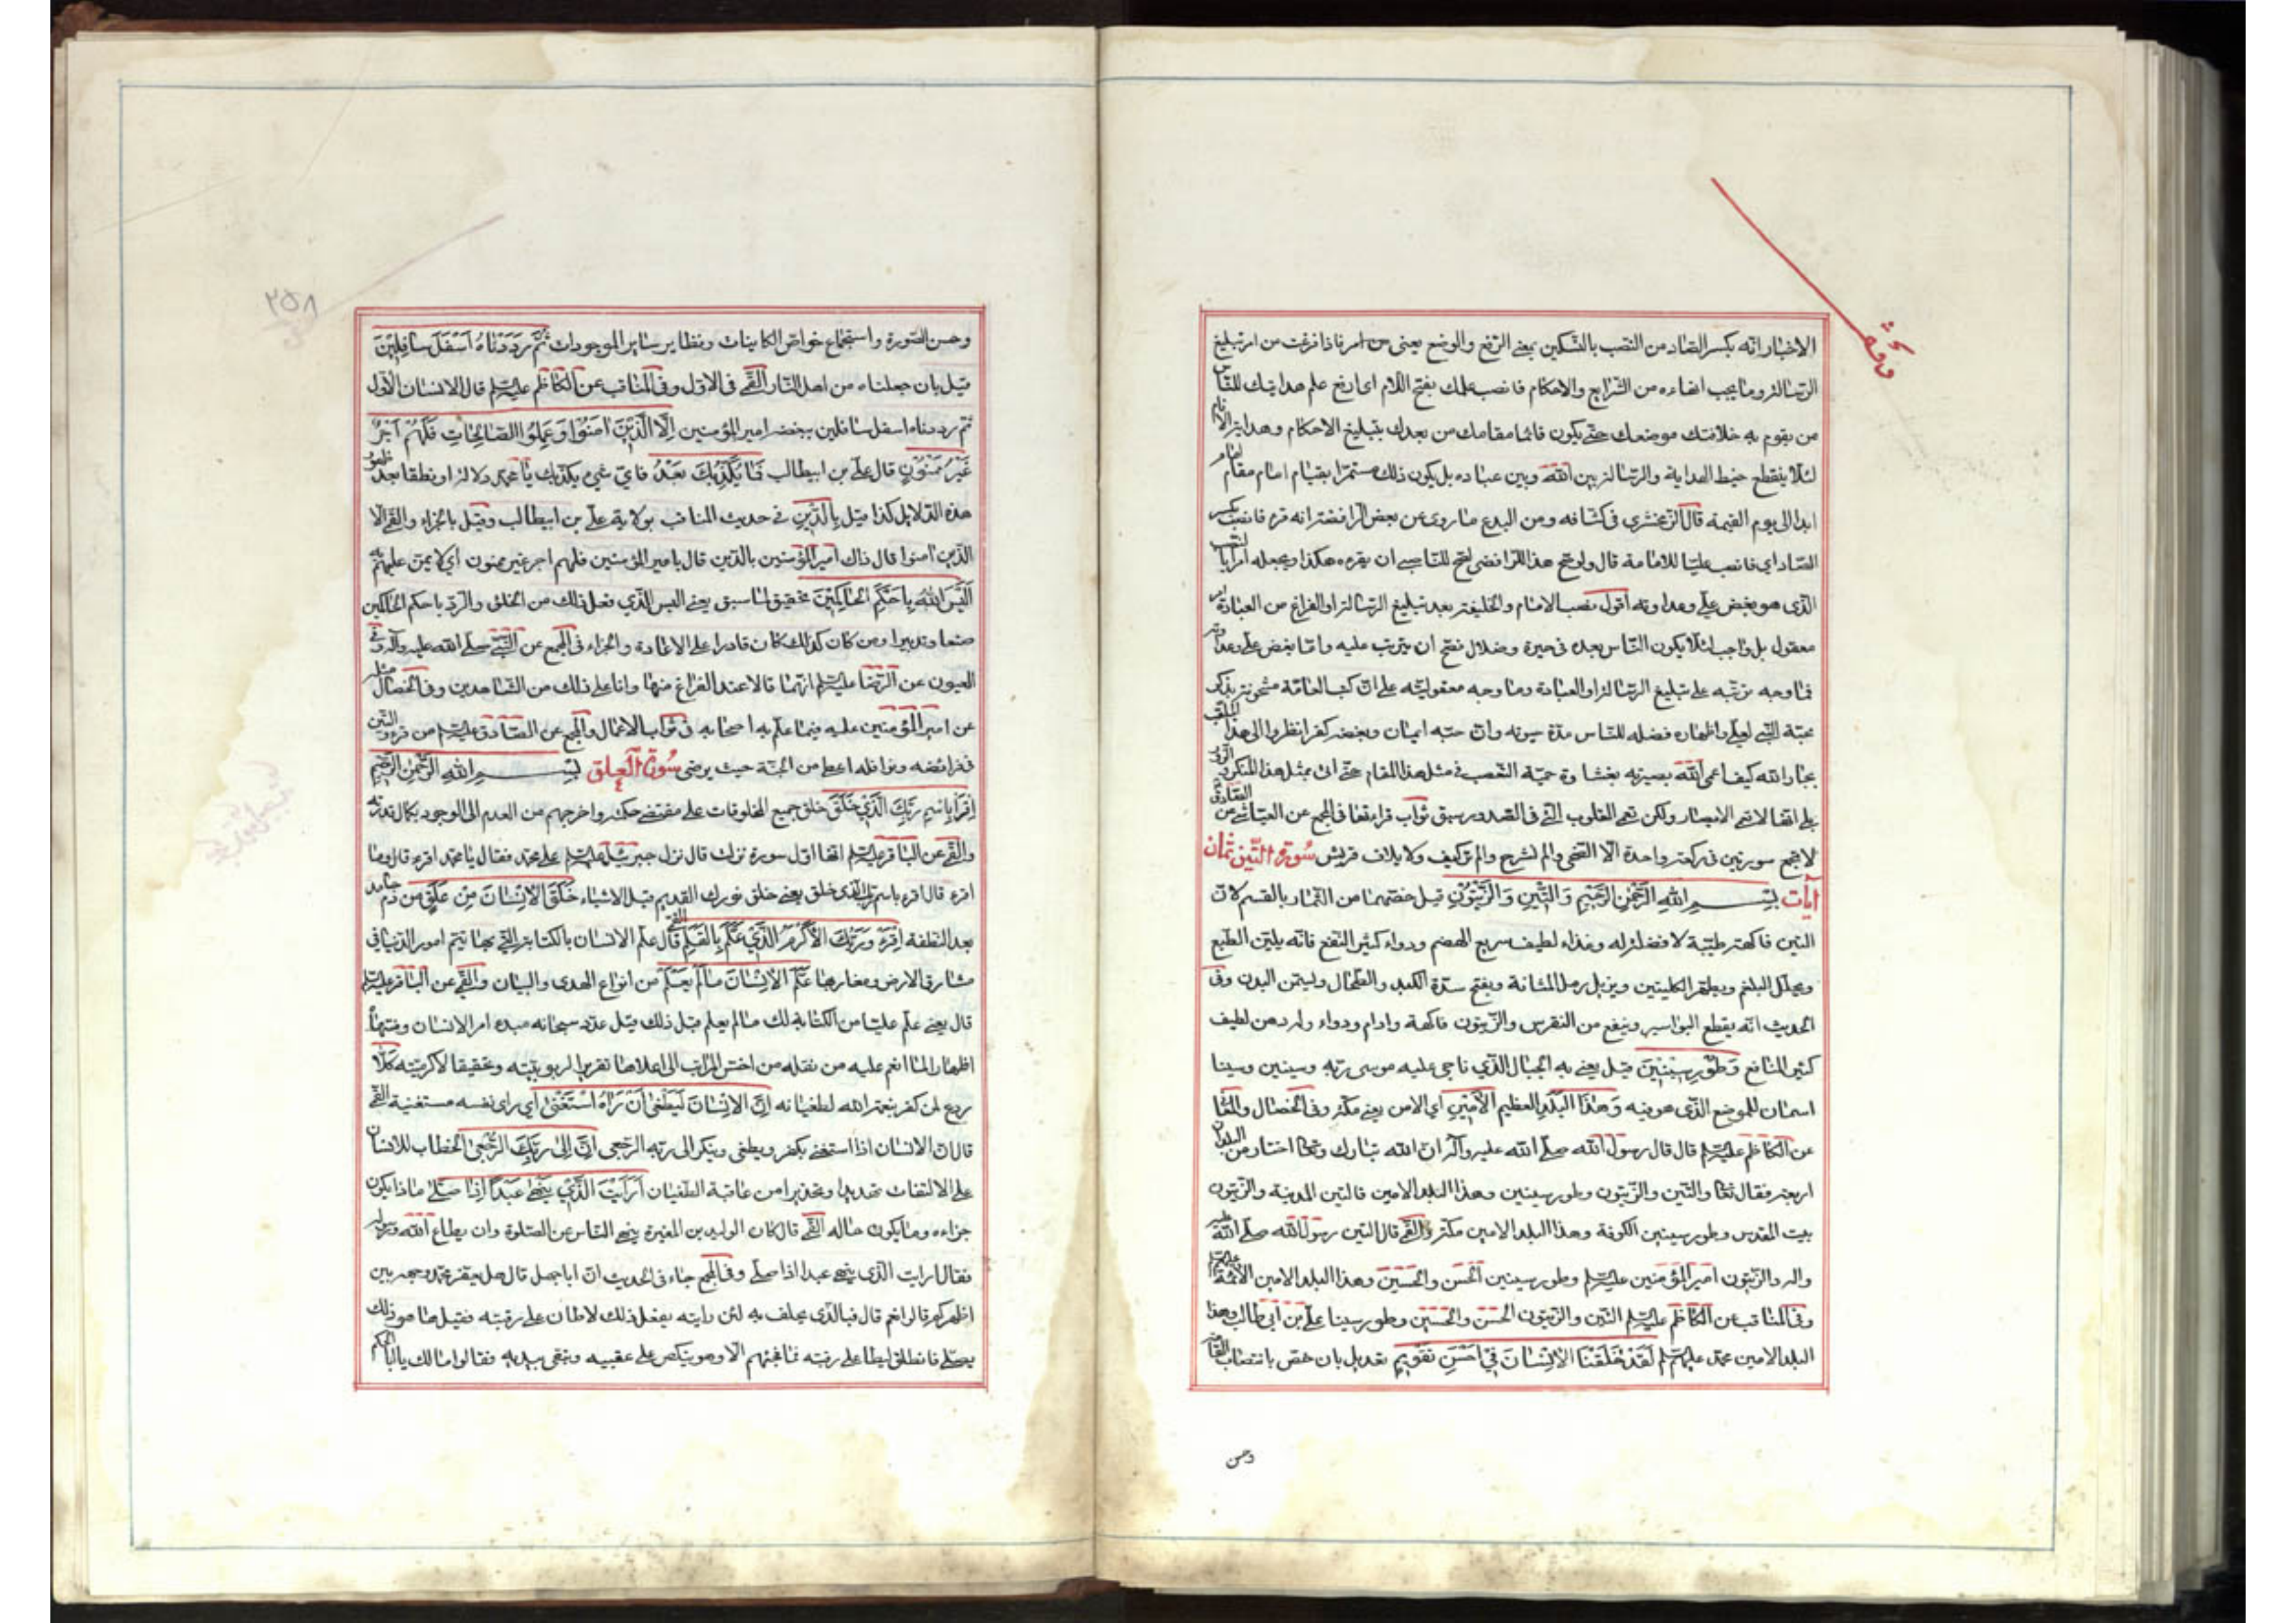 الاخبار انه بكسر الصاد من النصب بالتسكين بمعنى الرفع والوضع يعنى من امر فاذا فرغت من امر تبليغ
الرسالة وما يجب انهاءه من الشرايع والاحكام فانصب علمك بفتح اللام اى ارفع علم هدايتك للناس
من يقوم به خلافتك موضعك حتى يكون قائما مقامك من بعدك بتبليغ الاحكام وهداية الانام
لئلا ينقطع خيط الهداية والرسالة بين الله وبين عباده بل يكون ذلك مستمرا بقيام امام مقام امام
ابدا الى يوم القيمة قال الزمخشرى فى كشافه ومن البدع ما روى عن بعض الرافضة انه قرء فانصب بكسر
الصاد اي فانصب عليا للامامة قال ولو صح هذا للرافضى لصح للناصبى ان يقرء هكذا ويجعله امرا بالنصب
الذى هو بغض على وعداوته اقول نصب الامام والخليفة بعد تبليغ الرسالة او الفراغ من العبادة امر
معقول بل واجب لئلا يكون الناس بعده فى حيرة وضلال فصح ان يترتب عليه واما بغض على وعداوته
فما وجه ترتبه على تبليغ الرسالة او العبادة وما وجه معقوليته على ان كتب العامة مشحونة بذكر
محبة النبى لعلى واظهاره فضله للناس مدة حيوته وان حبه ايمان وبغضه كفر انظروا الى هذا الملقب
بجار الله كيف اعمى الله بصيرته بغشاوة حمية التعصب فى مثل هذا المقام حتى اتى بمثل هذا المنكر والزور
بلى انها لا تعمى الابصار ولكن تعمى القلوب التى فى الصدور سبق ثواب قراءتها فى المجمع عن العياشى عن الصادق
لا تجمع سورتين فى ركعة واحدة الا الضحى والم نشرح والم تر كيف ولايلاف قريش سورة التين ثمان
آيات بسم الله الرحمن الرحيم وَالتِّينِ وَالزَّيْتُونِ قيل خصهما من الثمار بالقسم لان
التين فاكهة طيبة لا فضلة له وغذاء لطيف سريع الهضم ودواء كثير النفع فانه يلين الطبع
ويحلل البلغم ويطهر الكليتين ويزيل رمل المثانة ويفتح سدة الكبد والطحال وليمن البدن وفى
الحديث انه يقطع البواسير وينفع من النقرس والزيتون فاكهة وادام ودواء وله دهن لطيف
كثير المنافع وَطُورِ سِينِينَ قيل يعنى به الجبال الذي ناجى عليه موسى ربه وسينين وسينا
اسمان للموضع الذى هو فيه وَهٰذَا الْبَلَدِ العظيم الْأَمِينِ اي الامن يعنى مكة وفى الخصال والمعانى
عن الكاظم عليه السلام قال قال رسول الله صلى الله عليه وآله ان الله تبارك وتعالى اختار من البلدان
اربعة فقال تعالى والتين والزيتون وطور سينين وهذا البلد الامين فالتين المدينة والزيتون
بيت المقدس وطور سينين الكوفة وهذا البلد الامين مكة والقمى قال التين رسول الله صلى الله عليه
واله والزيتون امير المؤمنين عليه السلم وطور سينين الحسن والحسين وهذا البلد الامين الائمة عليهم السلم
وفى المناقب عن الكاظم عليه السلم التين والزيتون الحسن والحسين وطور سينا على بن ابى طالب وهذا
البلد الامين محمد عليهم السلم لَقَدْ خَلَقْنَا الْإِنْسَانَ فِي أَحْسَنِ تَقْوِيمٍ تعديل بان خص بانتصاب القامة
وحسن
وحسن الصورة واستجماع خواص الكاينات ونظاير ساير الموجودات ثُمَّ رَدَدْنَاهُ أَسْفَلَ سَافِلِينَ
قيل بان جعلناه من اهل النار القمى فى الاول وفى المناقب عن الكاظم عليه السلم قال الانسان الاول
ثم رددناه اسفل سافلين ببغضه امير المؤمنين إِلَّا الَّذِينَ آمَنُوا وَعَمِلُوا الصَّالِحَاتِ فَلَهُمْ أَجْرٌ
غَيْرُ مَمْنُونٍ قال على بن ابيطالب فَمَا يُكَذِّبُكَ بَعْدُ فاي شىء يكذبك يا محمد دلالة او نطقا بعد ظهور
هذه الدلايل كذا قيل بِالدِّينِ فى حديث المناقب بولاية على بن ابيطالب وقيل بالجزاء والقمى الا
الذين امنوا قال ذاك امير المؤمنين بالدين قال بامير المؤمنين فلهم اجر غير ممنون اي لا يمن عليهم به
أَلَيْسَ اللَّهُ بِأَحْكَمِ الْحَاكِمِينَ تحقيق لما سبق يعنى اليس الذي فعل ذلك من الخلق والرد باحكم الحاكمين
صنعا وتدبيرا ومن كان كذلك كان قادرا على الاعادة والجزاء فى المجمع عن النبى صلى الله عليه وآله وفى
العيون عن الرضا عليه السلم انهما قالا عند الفراغ منها وانا على ذلك من الشاهدين وفى الخصال مثله
عن امير المؤمنين عليه فيما علم به اصحابه فى ثواب الاعمال والمجمع عن الصادق عليه السلم من قرء والتين
فى فرائضه ونوافله اعطى من الجنة حيث يرضى سورة العلق بسم الله الرحمن الرحيم
اِقْرَأْ بِاسْمِ رَبِّكَ الَّذِي خَلَقَ خلق جميع المخلوقات على مقتضى حكمته واخرجهم من العدم الى الوجود بكمال قدرته
والقمى عن الباقر عليه السلم انها اول سورة نزلت قال نزل جبرئيل عليه السلم على محمد فقال يا محمد اقرء قال وما
اقرء قال اقرء باسم ربك الذى خلق يعنى خلق نورك القديم قبل الاشياء خَلَقَ الْإِنْسَانَ مِنْ عَلَقٍ من دم جامد
بعد النطفة اِقْرَءْ وَرَبُّكَ الْأَكْرَمُ الَّذِي عَلَّمَ بِالْقَلَمِ القمى قال علم الانسان بالكتابة التى بها تتم امور الدنيا فى
مشارق الارض ومغاربها عَلَّمَ الْإِنْسَانَ مَا لَمْ يَعْلَمْ من انواع الهدى والبيان والقمى عن الباقر عليه السلم
قال يعنى علم عليا من الكتابة لك ما لم يعلم قبل ذلك قيل عدد سبحانه مبدء امر الانسان ومنتهاه
اظهارا لما انعم عليه من نقله من اخس المراتب الى اعلاها تقريرا لربوبيته وتحقيقا لاكرميته كَلَّا
ردع لمن كفر بنعمة الله لطغيانه إِنَّ الْإِنْسَانَ لَيَطْغَىٰ أَنْ رَآهُ اسْتَغْنَىٰ اي راى نفسه مستغنية القمى
قال ان الانسان اذا استغنى يكفر ويطغى وينكر الى ربه الرجعى إِنَّ إِلَىٰ رَبِّكَ الرُّجْعَىٰ الخطاب للانسان
على الالتفات تهديدا وتحذيرا من عاقبة الطغيان أَرَأَيْتَ الَّذِي يَنْهَىٰ عَبْدًا إِذَا صَلَّىٰ ماذا يكون
جزاءه وما يكون حاله القمى قال كان الوليد بن المغيرة ينهى الناس عن الصلوة وان يطاع الله ورسوله
فقال ارايت الذى ينهى عبدا اذا صلى وفى المجمع جاء فى الحديث ان اباجهل قال هل يعفر محمد وجهه بين
اظهركم قالوا نعم قال فبالذى يحلف به لئن رايته يفعل ذلك لاطان على رقبته فقيل ها هو ذلك
يصلى فانطلق ليطا على رقبته فما فجئهم الا وهو ينكص على عقبيه ويتقى بيديه فقالوا مالك يا ابا الحكم
٢٥٨